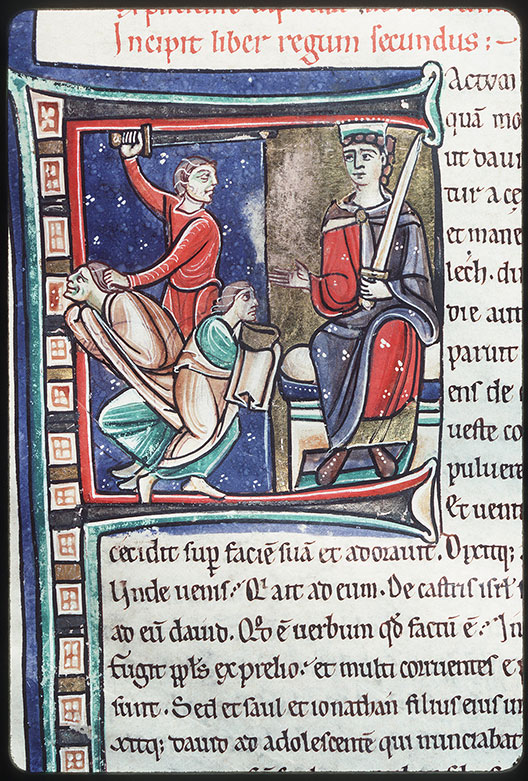 Incipit liber regum secundus:~
Actum
quā mo
ut dauı
tur a ce
et mane
lech. du
die aut
paruit
ens de
ueste co
puluere
Et uenit
cecidit sup faciē suā et adorauit. Dixitq;
Unde uenis? Qi ait ad eum. De castris isrl
ad eū dauid. Qd ē uerbum qd factū ē? In
fugit ppls ex prelio. et multi corruentes e
sunt. Sed et saul et ionathan filius eius in
xitq; dauid ad adolescentē qui nunciabat